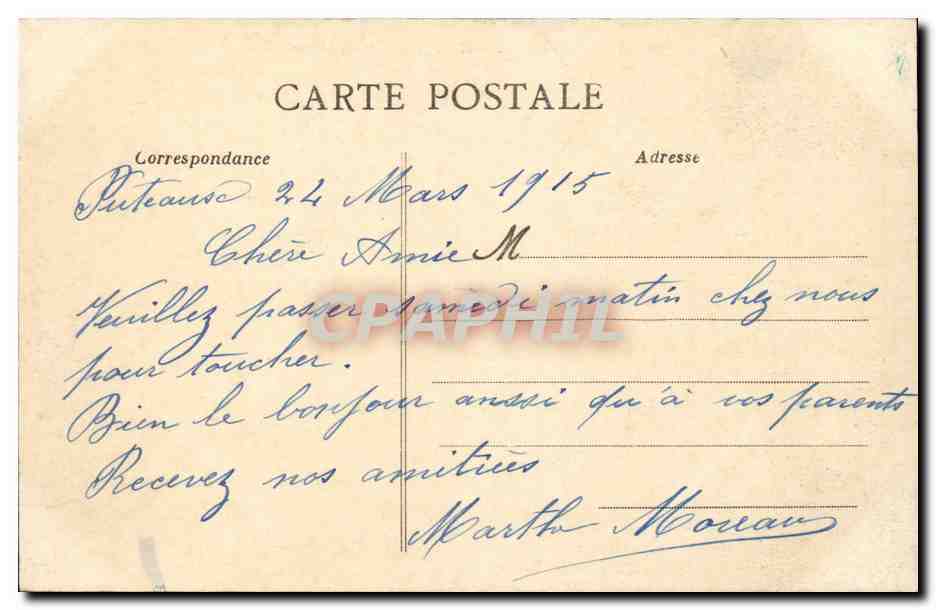 CARTE POSTALE
Correspondance
Adresse
Puteaux 24 Mars 1915
Chère Amie M
Veuillez passer samedi matin chez nous
pour toucher.
Bien le bonjour aussi qu'à vos parents
Recevez nos amitiées
Marthe Moreau
CPAPHIL